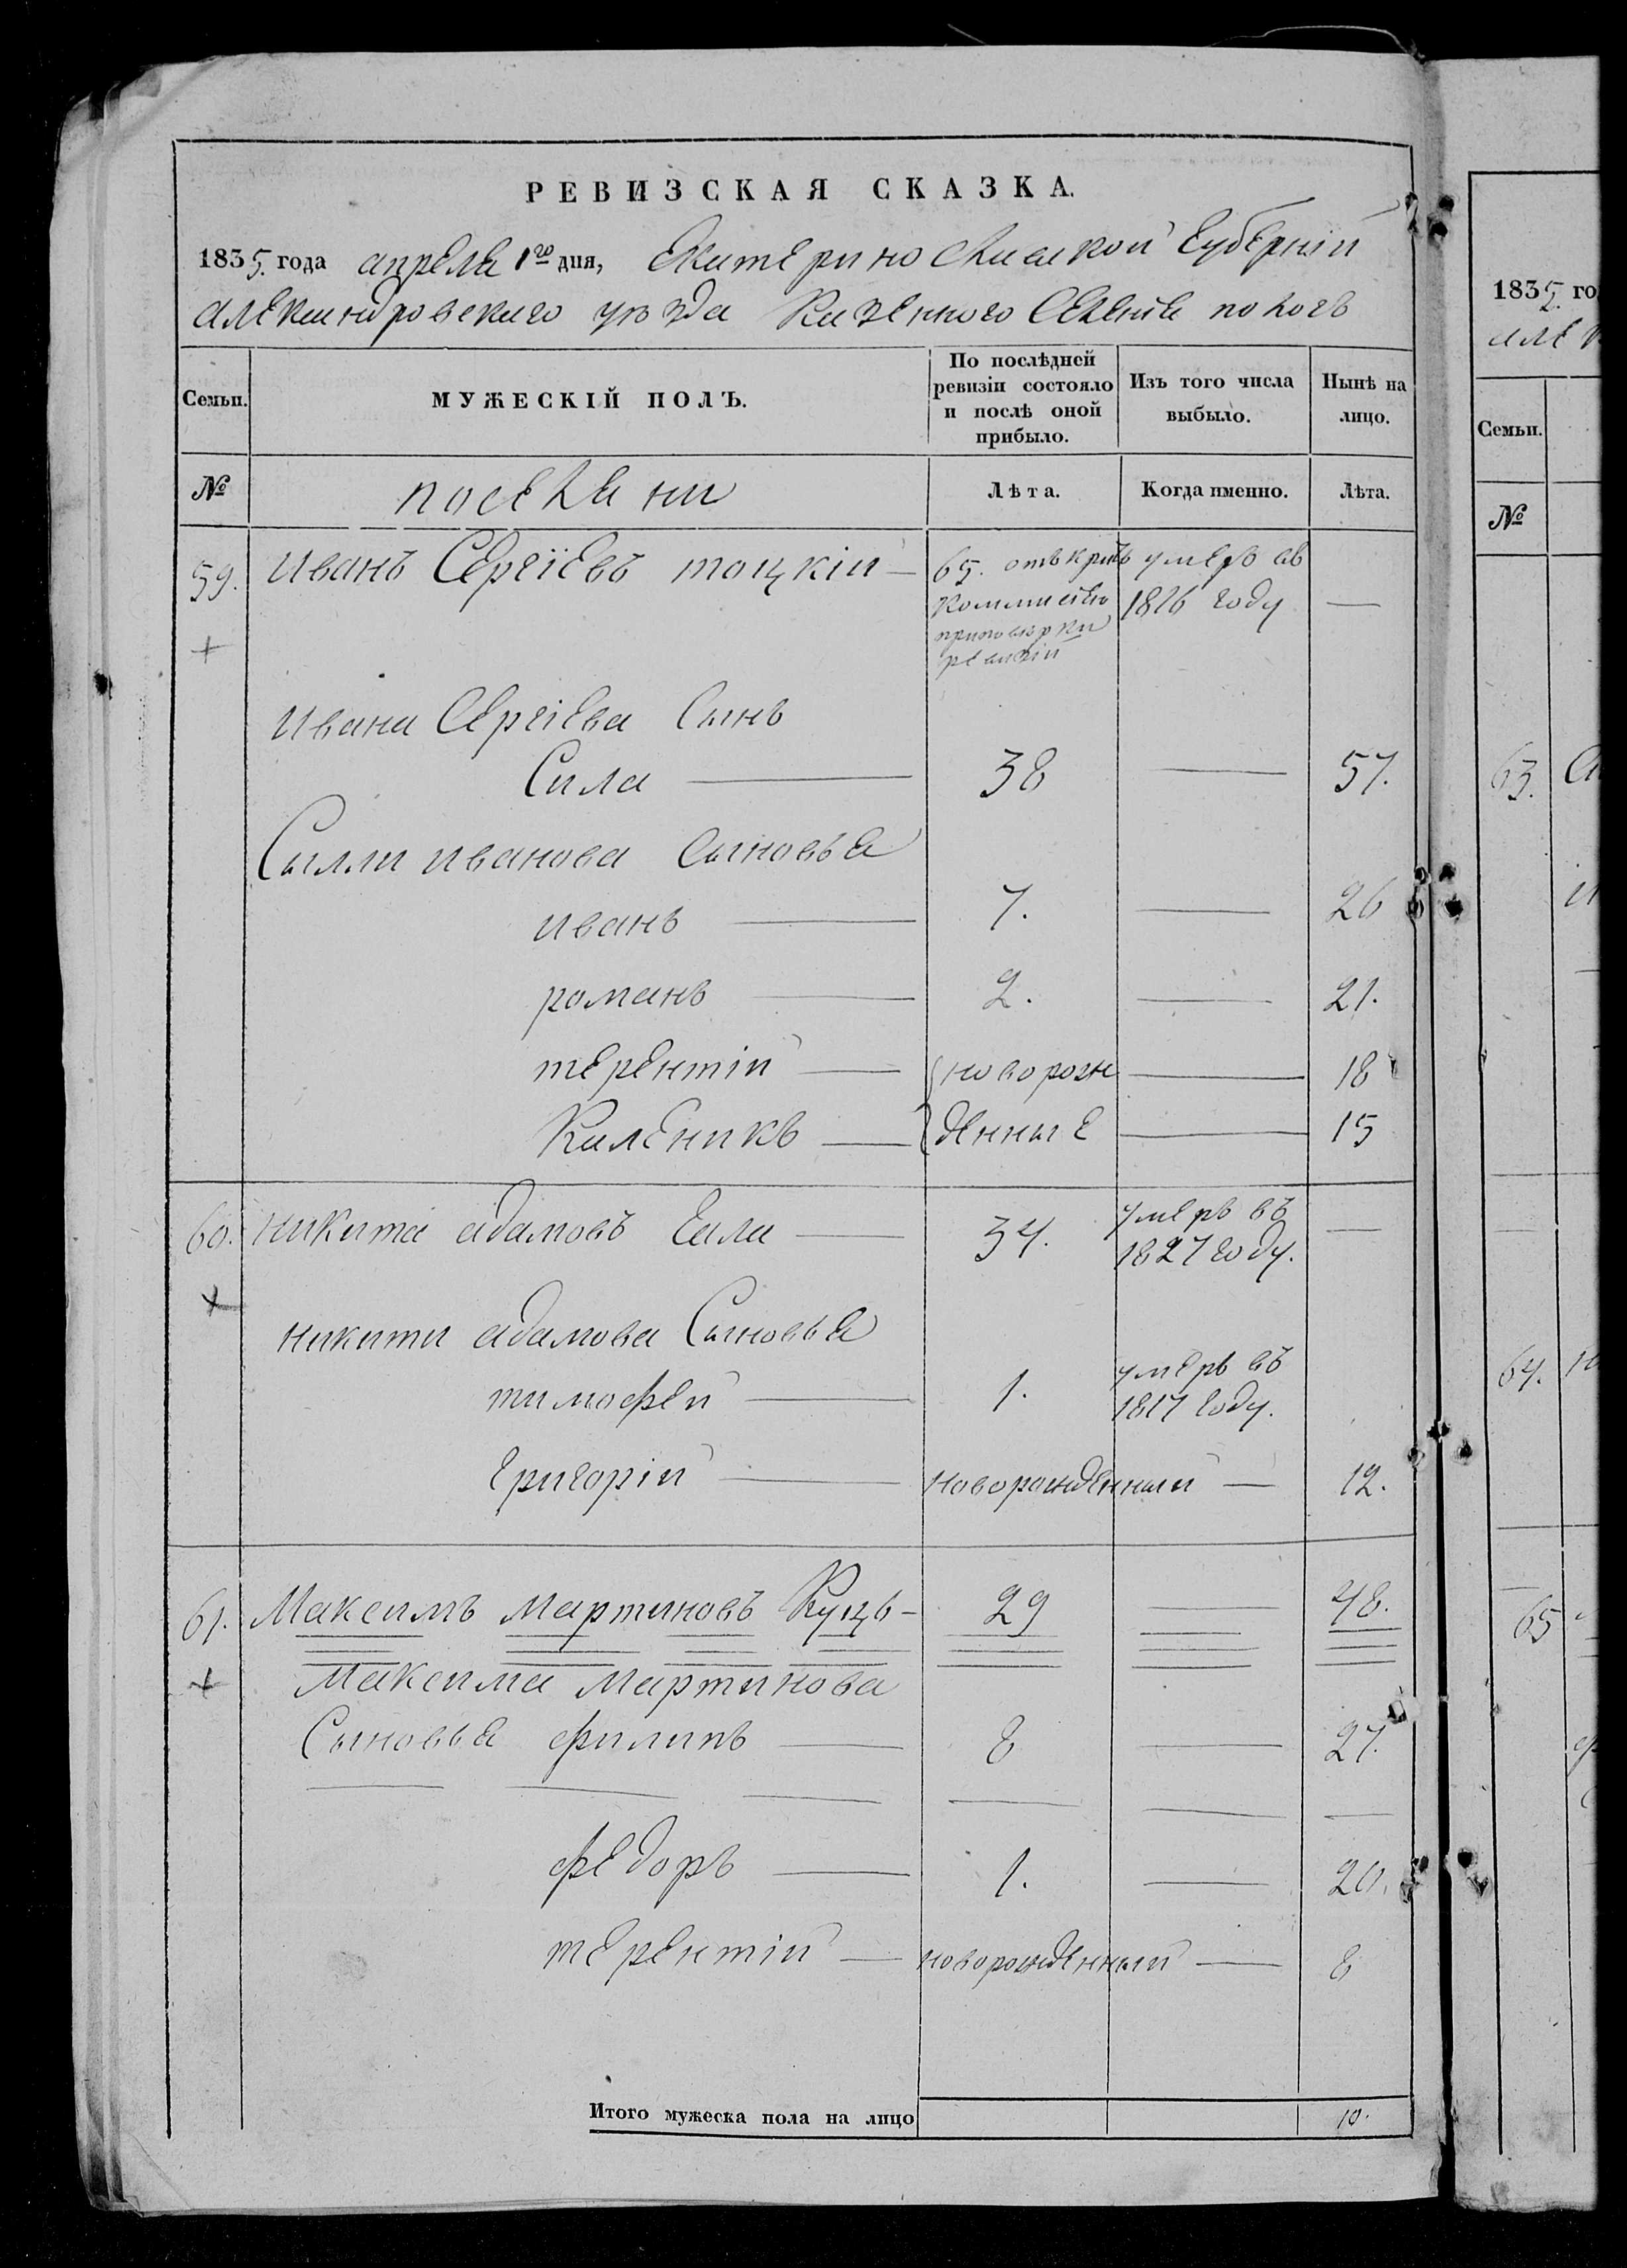 РЕВИЗСКАЯ СКАЗКА.
1835. года апреля 1го дня, Екатеринославской Губерніи
александровского уезда Казенного Селенія пологъ
Семьи.
МУЖЕСКІЙ ПОЛЪ.
По послѣдней ревизіи состояло и послѣ оной прибыло.
Изъ того числа выбыло.
Нынѣ на лицо.
№
поселяни
Лѣта.
Когда именно.
Лѣта.
59. Иванъ Сергіевъ тоцкій — 65. умеръ въ 1826 году —
+
ревизіи
Ивана Сергіева Сынъ
Сила — 38 — 57.
Сылли иванова Сыновья
иванъ — 7. — 26
романъ — 2. — 21.
терентій — новорож — 18
Каленикъ — денные — 15
60. никита адамовъ — 34. умеръ въ 1827 году. —
+
никити адамова Сыновья
тимофей — 1. умеръ въ 1817 году.
Григорій — новорожденный — 12.
61. Максимъ мартиновъ Куцъ — 29 — 48.
+
Максима мартинова
Сыновья филипъ — 8 — 27.
федоръ — 1. — 20.
терентій — новорожденный — 8
Итого мужеска пола на лицо 10.
1835. го
але
Семьи.
№
63.
64.
65